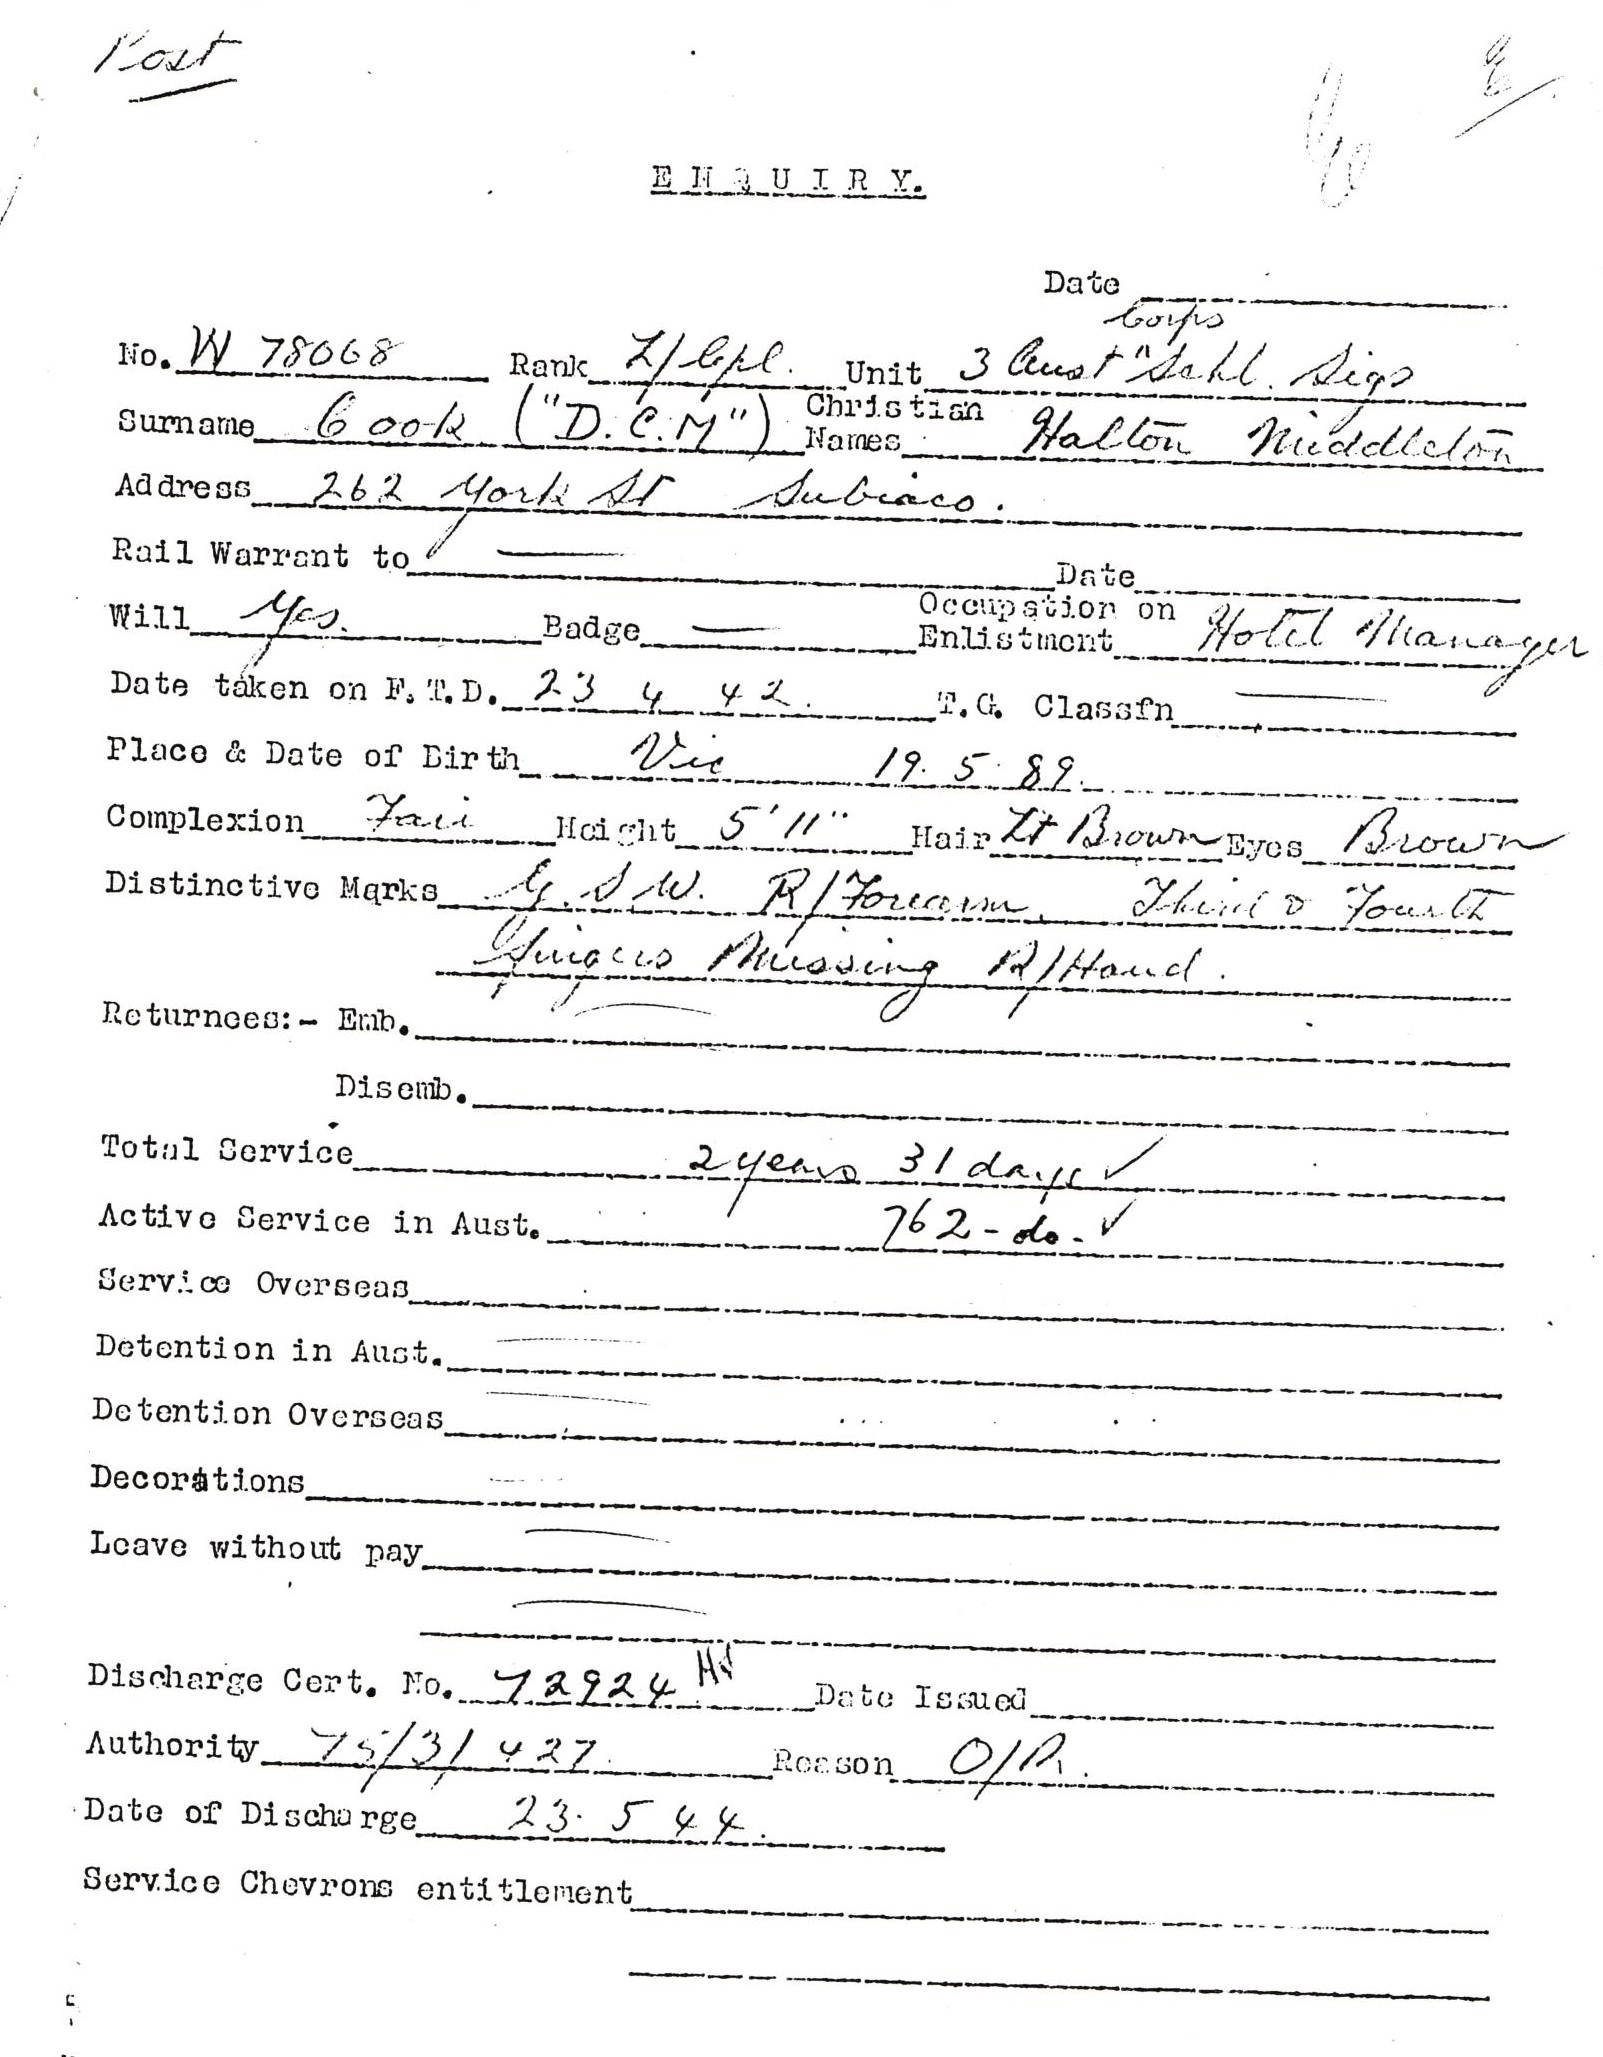 Post
E
E N Q U I R Y.
Date
Corps
No. W 78068 Rank L/Cpl. Unit 3 Aust "Schl. Sigs
Surname Cook ("D.C.M") Christian Names Halton Middleton
Address 262 York St Subiaco.
Rail Warrant to — Date
Will Yes. Badge — Occupation on Enlistment Hotel Manager
Date taken on F.T.D. 23 4 42. T.G. Classfn —
Place & Date of Birth Vic 19.5.89.
Complexion Fair Height 5'11" Hair Lt Brown Eyes Brown
Distinctive Marks G.S.W. R/Forearm. Third & Fourth
Fingers Missing R/Hand.
Returnees:- Emb. —
Disemb.
Total Service 2 years 31 days ✓
Active Service in Aust. 762 - do - ✓
Service Overseas
Detention in Aust. —
Detention Overseas —
Decorations —
Leave without pay —
—
Discharge Cert. No. 72924 Date Issued
Authority 75/3/427. Reason O/R.
Date of Discharge 23.5 44.
Service Chevrons entitlement